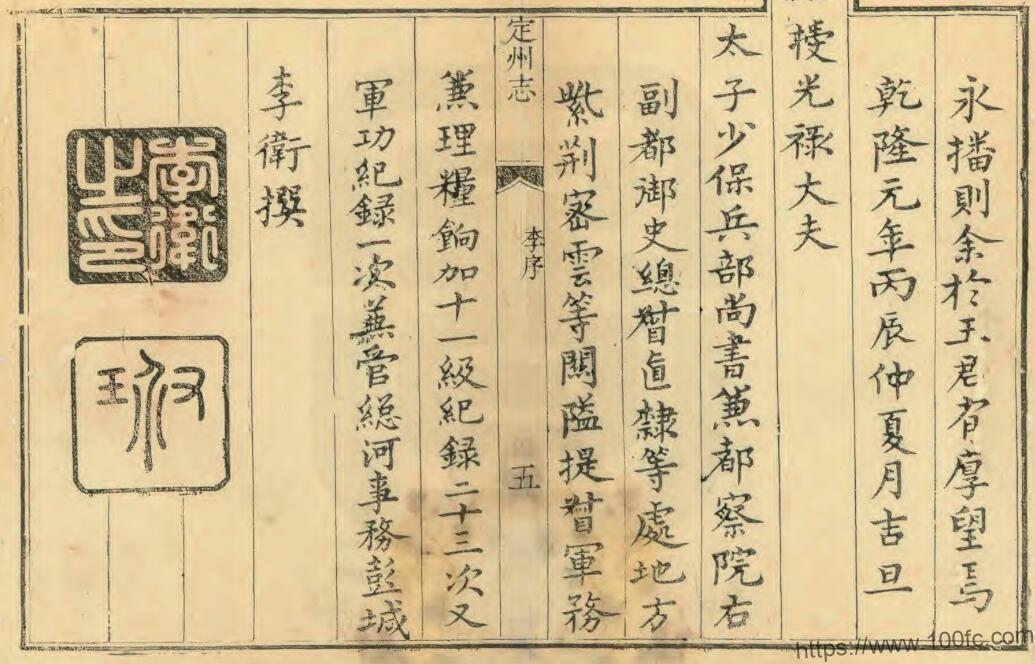 永播則余於王君有厚望焉
乾隆元年丙辰仲夏月吉旦
授光禄大夫
太子少保兵部尚書兼都察院右
副都御史總督直隸等處地方
紫荆宻雲等關隘提督軍務
定州志
李序
五
兼理糧餉加十一級紀録二十三次又
軍功紀録一次兼管總河事務彭城
李衛撰
李衛之印
https://www.100fc.com